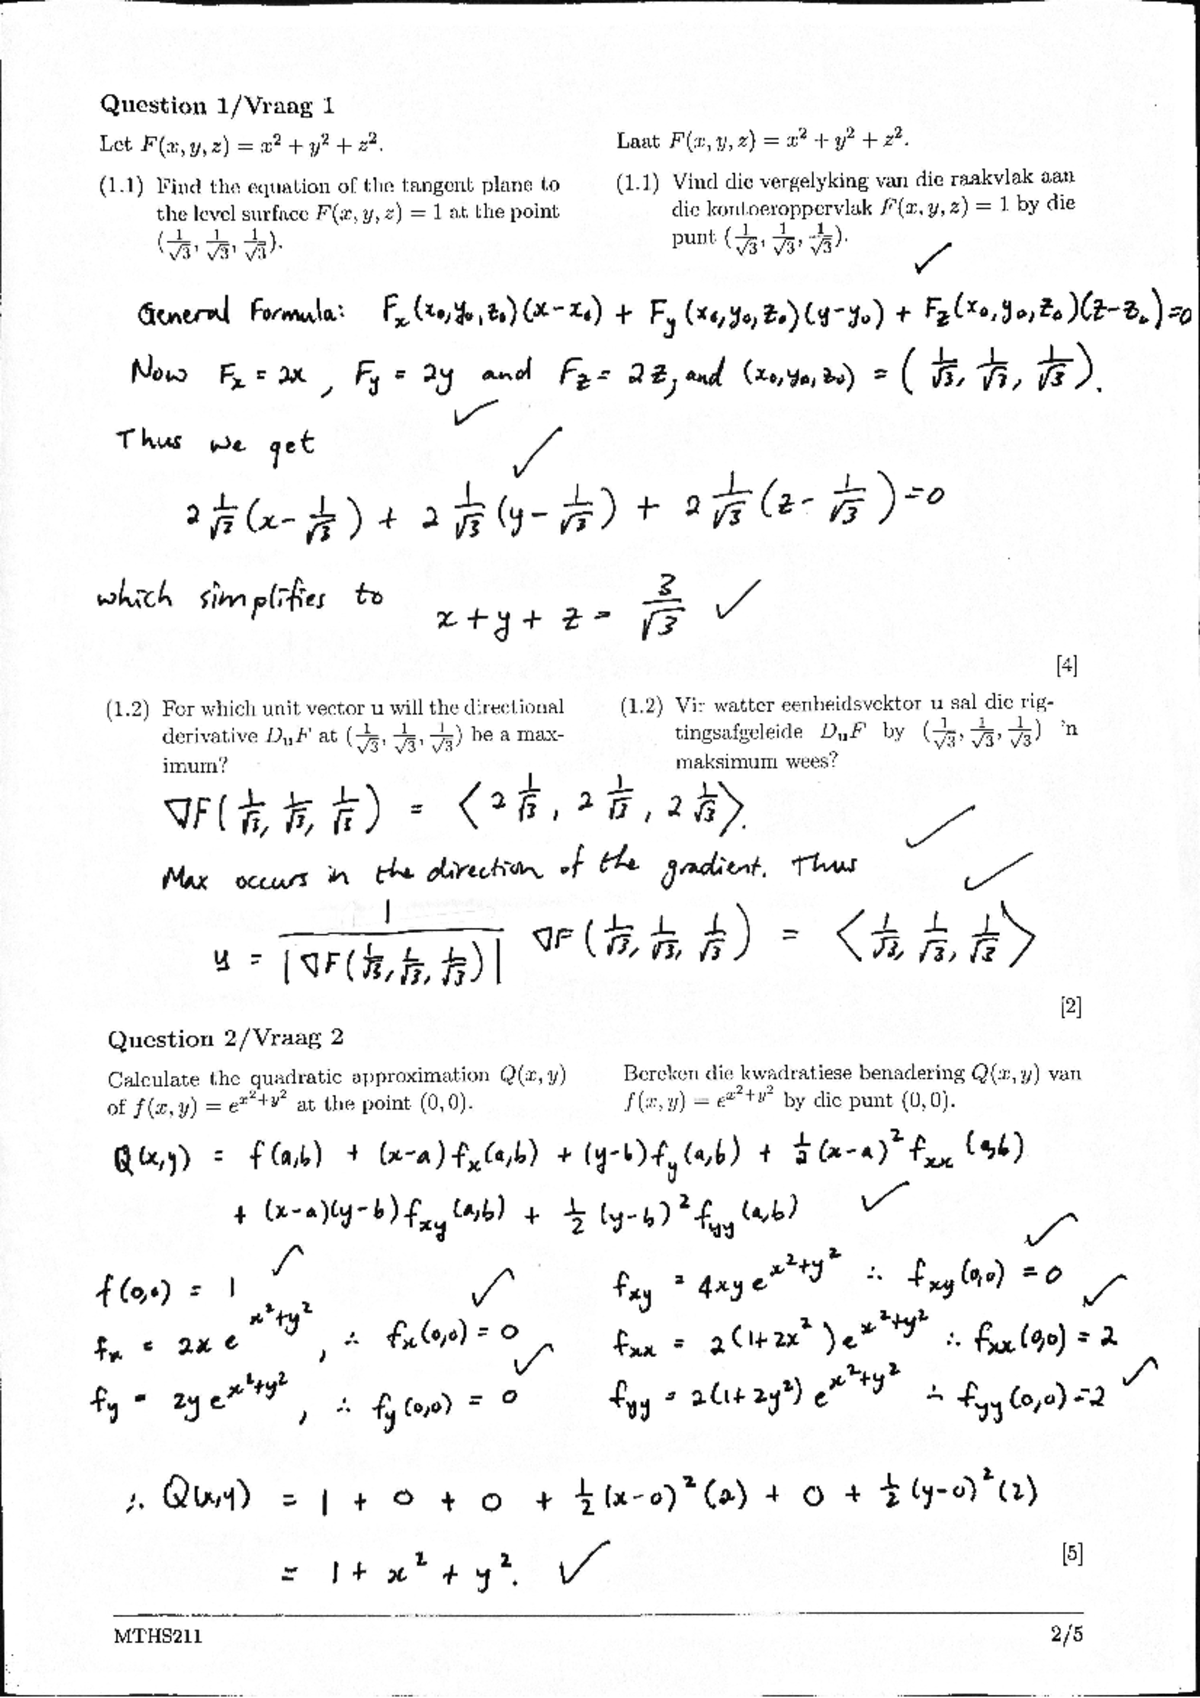 Question 1/Vraag 1
Let F(x, y, z) = x² + y² + z².
(1.1) Find the equation of the tangent plane to
the level surface F(x, y, z) = 1 at the point
(1/√3, 1/√3, 1/√3).
Laat F(x, y, z) = x² + y² + z².
(1.1) Vind die vergelyking van die raakvlak aan
die kontoeroppervlak F(x, y, z) = 1 by die
punt (1/√3, 1/√3, 1/√3).
General Formula: Fx(x₀,y₀,z₀)(x-x₀) + Fy(x₀,y₀,z₀)(y-y₀) + Fz(x₀,y₀,z₀)(z-z₀)=0
Now Fx = 2x, Fy = 2y and Fz = 2z, and (x₀,y₀,z₀) = (1/√3, 1/√3, 1/√3).
Thus we get
2 1/√3 (x - 1/√3) + 2 1/√3 (y - 1/√3) + 2 1/√3 (z - 1/√3) = 0
which simplifies to x + y + z = 3/√3
[4]
(1.2) For which unit vector u will the directional
derivative DuF at (1/√3, 1/√3, 1/√3) be a max-
imum?
(1.2) Vir watter eenheidsvektor u sal die rig-
tingsafgeleide DuF by (1/√3, 1/√3, 1/√3) 'n
maksimum wees?
∇F(1/√3, 1/√3, 1/√3) = ⟨2 1/√3, 2 1/√3, 2 1/√3⟩.
Max occurs in the direction of the gradient. Thus
u = 1/|∇F(1/√3, 1/√3, 1/√3)| ∇F(1/√3, 1/√3, 1/√3) = ⟨1/√3, 1/√3, 1/√3⟩
[2]
Question 2/Vraag 2
Calculate the quadratic approximation Q(x, y)
of f(x, y) = e^(x²+y²) at the point (0, 0).
Bereken die kwadratiese benadering Q(x, y) van
f(x, y) = e^(x²+y²) by die punt (0, 0).
Q(x,y) = f(a,b) + (x-a)fx(a,b) + (y-b)fy(a,b) + ½(x-a)² fxx(a,b)
+ (x-a)(y-b)fxy(a,b) + ½(y-b)² fyy(a,b)
f(0,0) = 1
fx = 2x e^(x²+y²), ∴ fx(0,0) = 0
fy = 2y e^(x²+y²), ∴ fy(0,0) = 0
fxy = 4xy e^(x²+y²) ∴ fxy(0,0) = 0
fxx = 2(1+2x²)e^(x²+y²) ∴ fxx(0,0) = 2
fyy = 2(1+2y²)e^(x²+y²) ∴ fyy(0,0) = 2
∴ Q(x,y) = 1 + 0 + 0 + ½(x-0)²(2) + 0 + ½(y-0)²(2)
= 1 + x² + y².
[5]
MTHS211
2/5